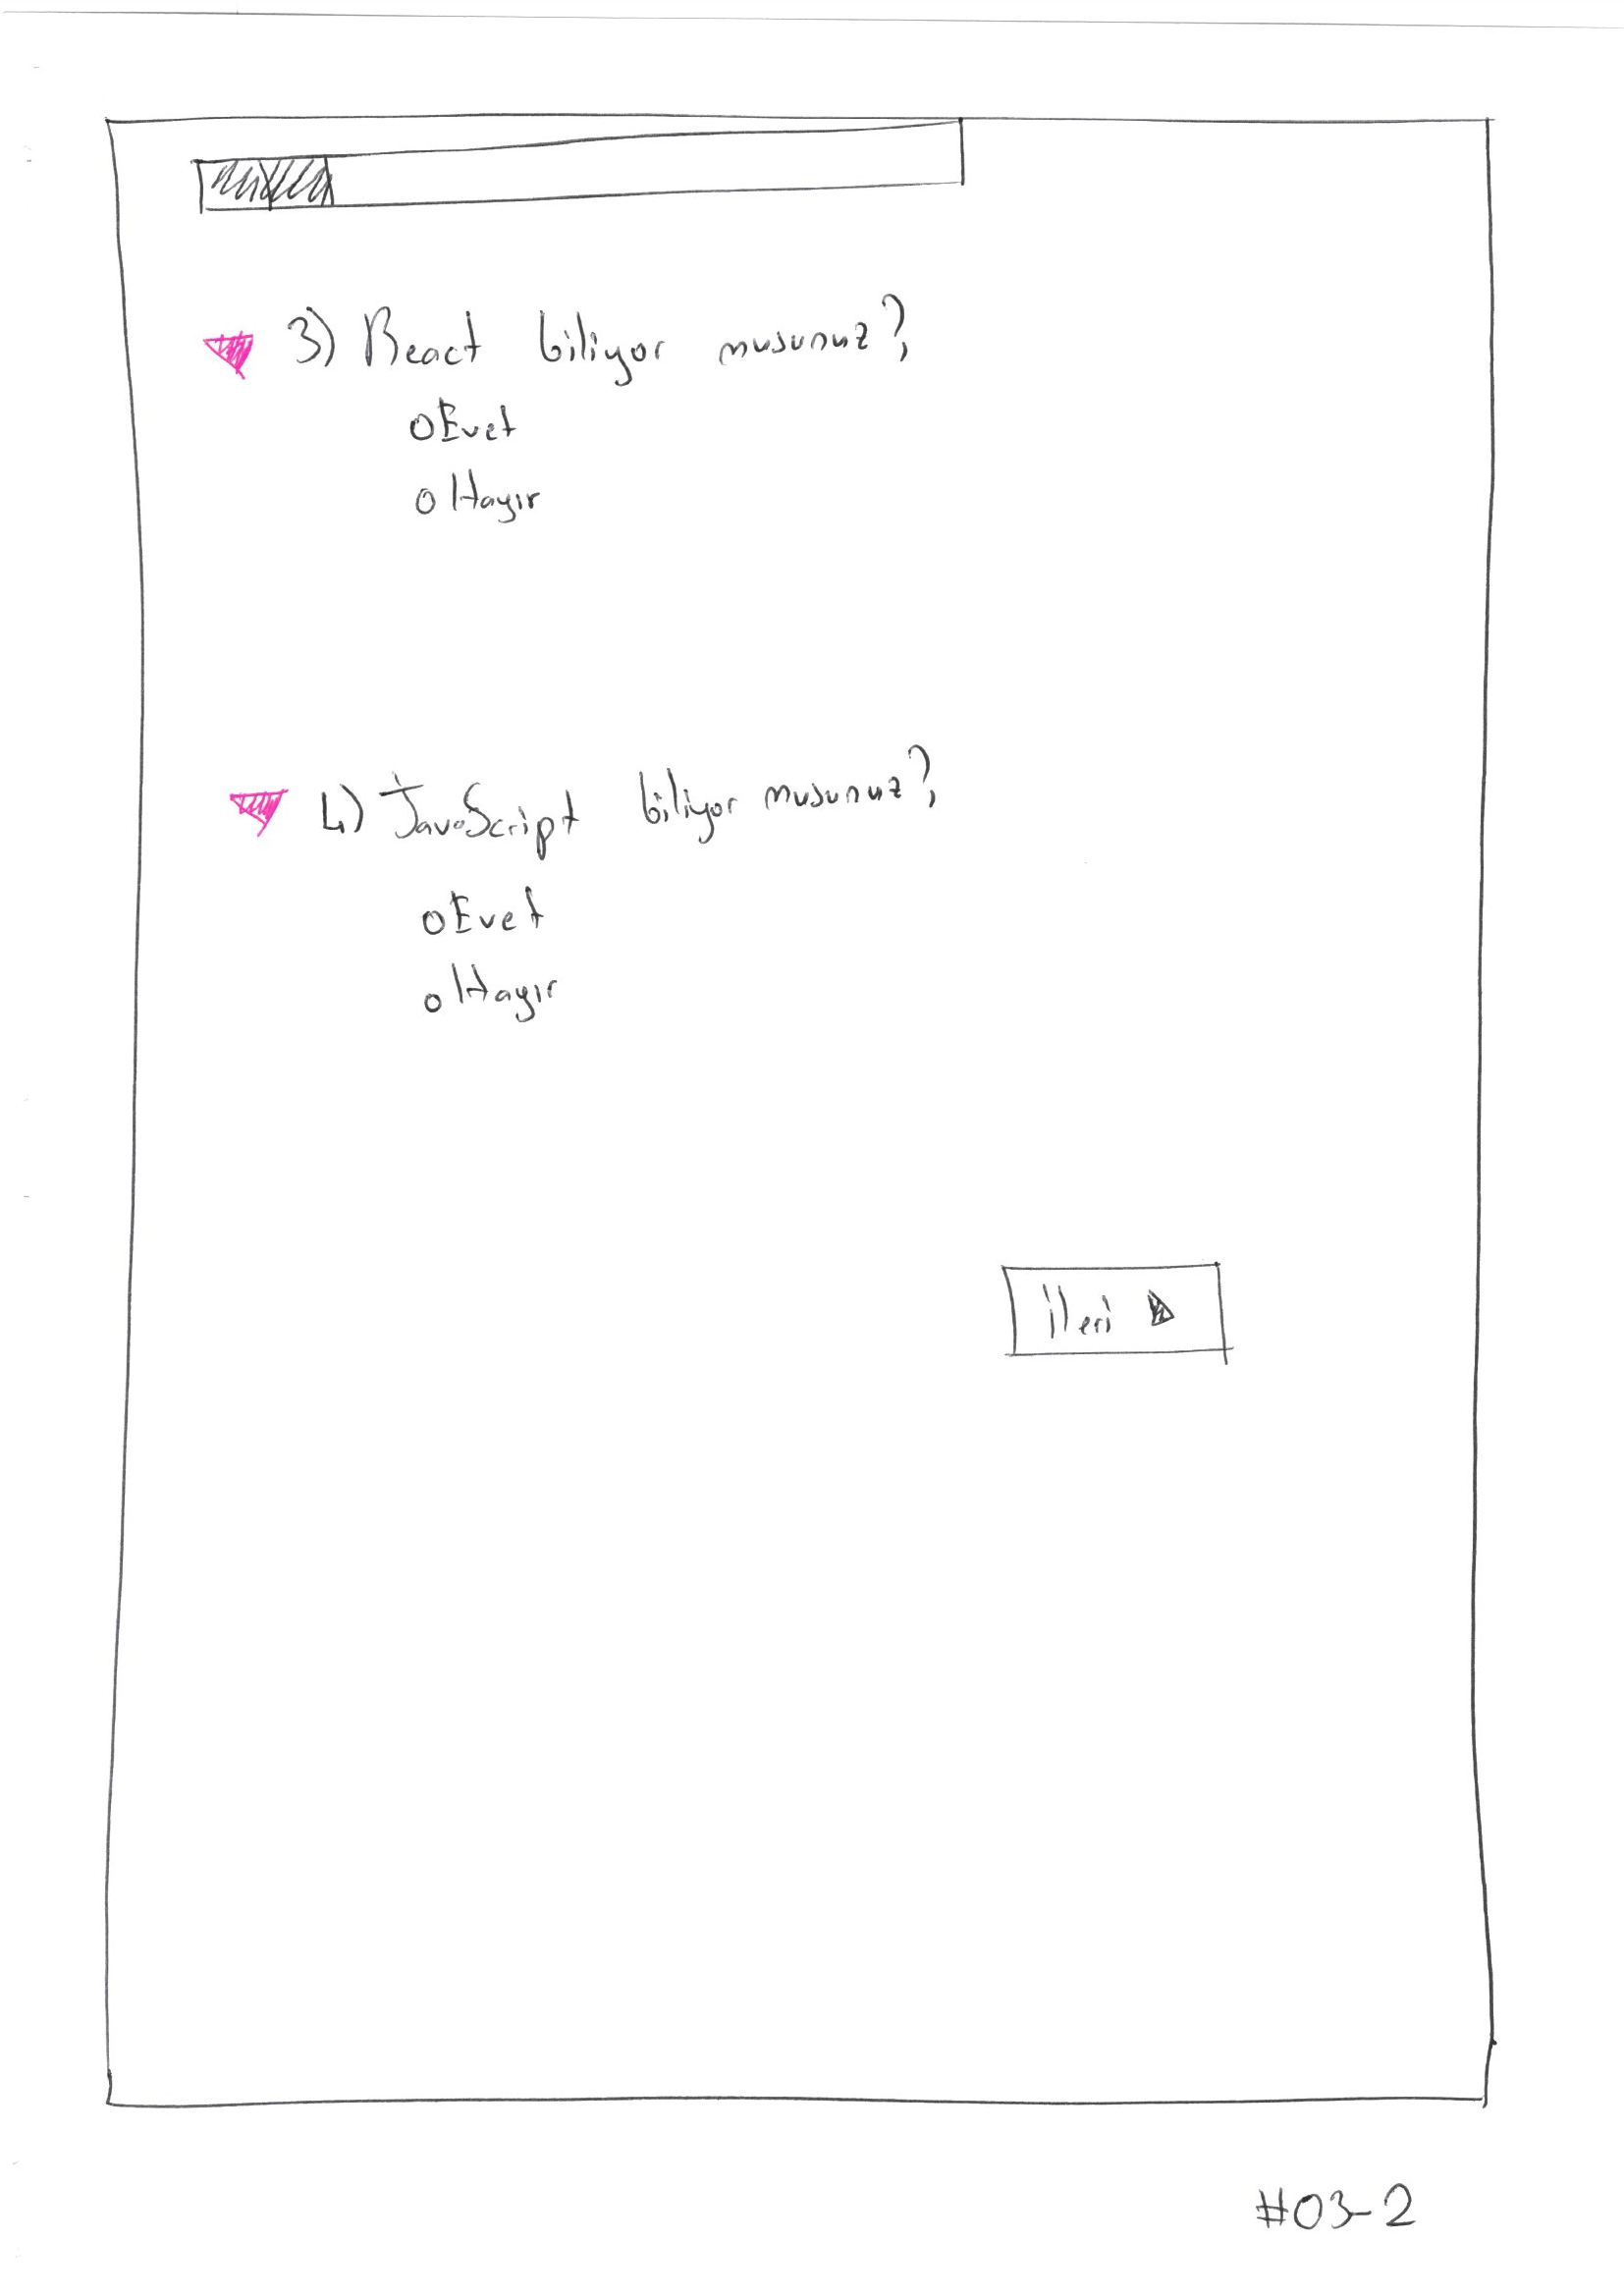 3) React biliyor musunuz?
Evet
Hayır
4) JavaScript biliyor musunuz?
Evet
Hayır
ileri
#03-2